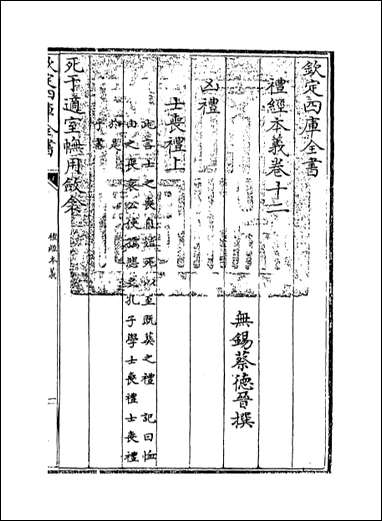 欽定四庫全書
禮經本義卷十二
無錫蔡德晉撰
凶禮
士喪禮上
此言士之喪自始死以至既葬之禮 記曰恤
由之喪哀公使孺悲之孔子學士喪禮士喪禮
於是
乎書
死于適室幠用斂衾
欽定四庫全書
禮經本義
一